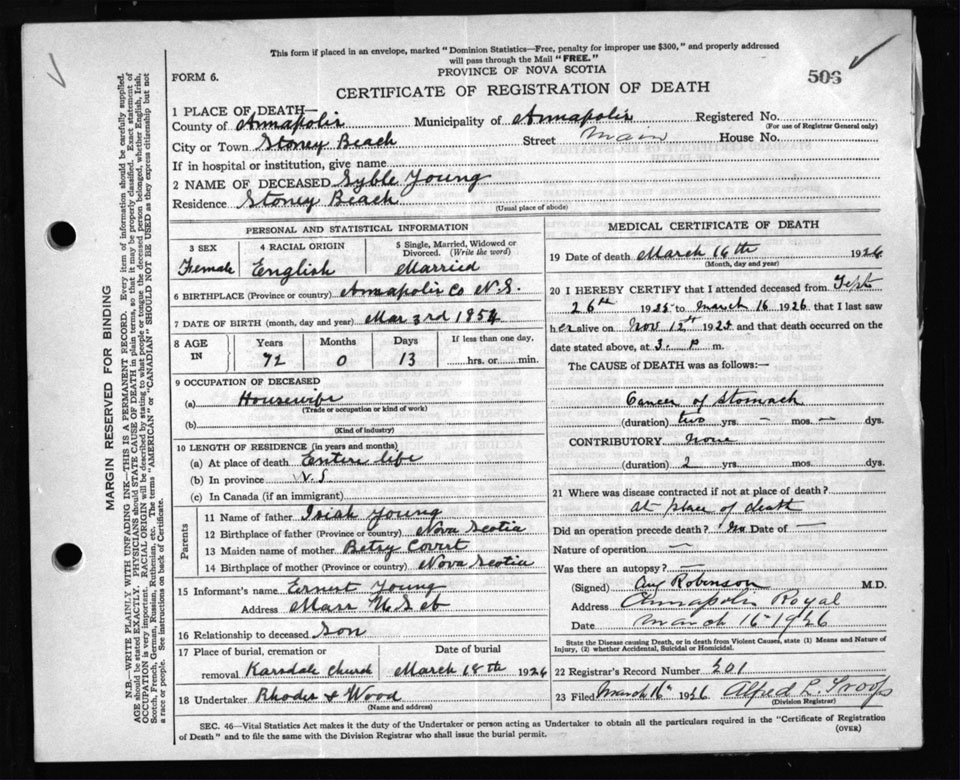 This form if placed in an envelope, marked "Dominion Statistics—Free, penalty for improper use $300," and properly addressed
will pass through the Mail "FREE."
PROVINCE OF NOVA SCOTIA
FORM 6.
506
CERTIFICATE OF REGISTRATION OF DEATH
1 PLACE OF DEATH—
County of Annapolis Municipality of Annapolis Registered No.
(For use of Registrar General only)
City or Town Stoney Beach Street Main House No.
If in hospital or institution, give name
2 NAME OF DECEASED Syble Young
Residence Stoney Beach
(Usual place of abode)
PERSONAL AND STATISTICAL INFORMATION
3 SEX 4 RACIAL ORIGIN 5 Single, Married, Widowed or
Divorced. (Write the word)
Female English Married
6 BIRTHPLACE (Province or country) Annapolis Co N.S.
7 DATE OF BIRTH (month, day and year) Mar 3rd 1854
8 AGE IN Years Months Days If less than one day.
72 0 13 hrs. or min.
9 OCCUPATION OF DECEASED
(a) Housewife
(Trade or occupation or kind of work)
(b)
(Kind of industry)
10 LENGTH OF RESIDENCE (in years and months)
(a) At place of death Entire life
(b) In province N.S
(c) In Canada (if an immigrant)
Parents
11 Name of father Isiah Young
12 Birthplace of father (Province or country) Nova Scotia
13 Maiden name of mother Betsy Covert
14 Birthplace of mother (Province or country) Nova Scotia
15 Informant's name Ernest Young
Address Mass
16 Relationship to deceased Son
17 Place of burial, cremation or Date of burial
removal Karsdale Church March 18th 1926
18 Undertaker Rhodes & Wood
(Name and address)
MEDICAL CERTIFICATE OF DEATH
19 Date of death March 16th 1926
(Month, day and year)
20 I HEREBY CERTIFY that I attended deceased from Sept
26th 1925 to March 16 1926 that I last saw
her alive on Nov 12th 1925 and that death occurred on the
date stated above, at 3. P m.
The CAUSE of DEATH was as follows:—
Cancer of Stomach
(duration) two yrs. — mos. — dys.
CONTRIBUTORY None
(duration) 2 yrs. mos. dys.
21 Where was disease contracted if not at place of death?
At place of death
Did an operation precede death? No Date of —
Nature of operation —
Was there an autopsy? —
(Signed) Aug Robinson M.D.
Address Annapolis Royal
Date March 16-1926
State the Disease causing Death, or in death from Violent Causes, state (1) Means and Nature of
Injury, (2) whether Accidental, Suicidal or Homicidal.
22 Registrar's Record Number 201
23 Filed March 16th 1926 Alfred L. Troop
(Division Registrar)
SEC. 46—Vital Statistics Act makes it the duty of the Undertaker or person acting as Undertaker to obtain all the particulars required in the "Certificate of Registration
of Death" and to file the same with the Division Registrar who shall issue the burial permit.
(OVER)
MARGIN RESERVED FOR BINDING
N.B.—WRITE PLAINLY WITH UNFADING INK—THIS IS A PERMANENT RECORD. Every item of information should be carefully supplied.
AGE should be stated EXACTLY. PHYSICIANS should STATE CAUSE OF DEATH in plain terms, so that it may be properly classified. Exact statement of
OCCUPATION is very important. RACIAL ORIGIN will be described by stating to what people or tongue the deceased person belonged, whether English, Irish,
Scotch, French, German, Russian, Ruthenian, etc. The terms "AMERICAN" or "CANADIAN" SHOULD NOT BE USED as they express citizenship but not
a race or people. See instructions on back of Certificate.